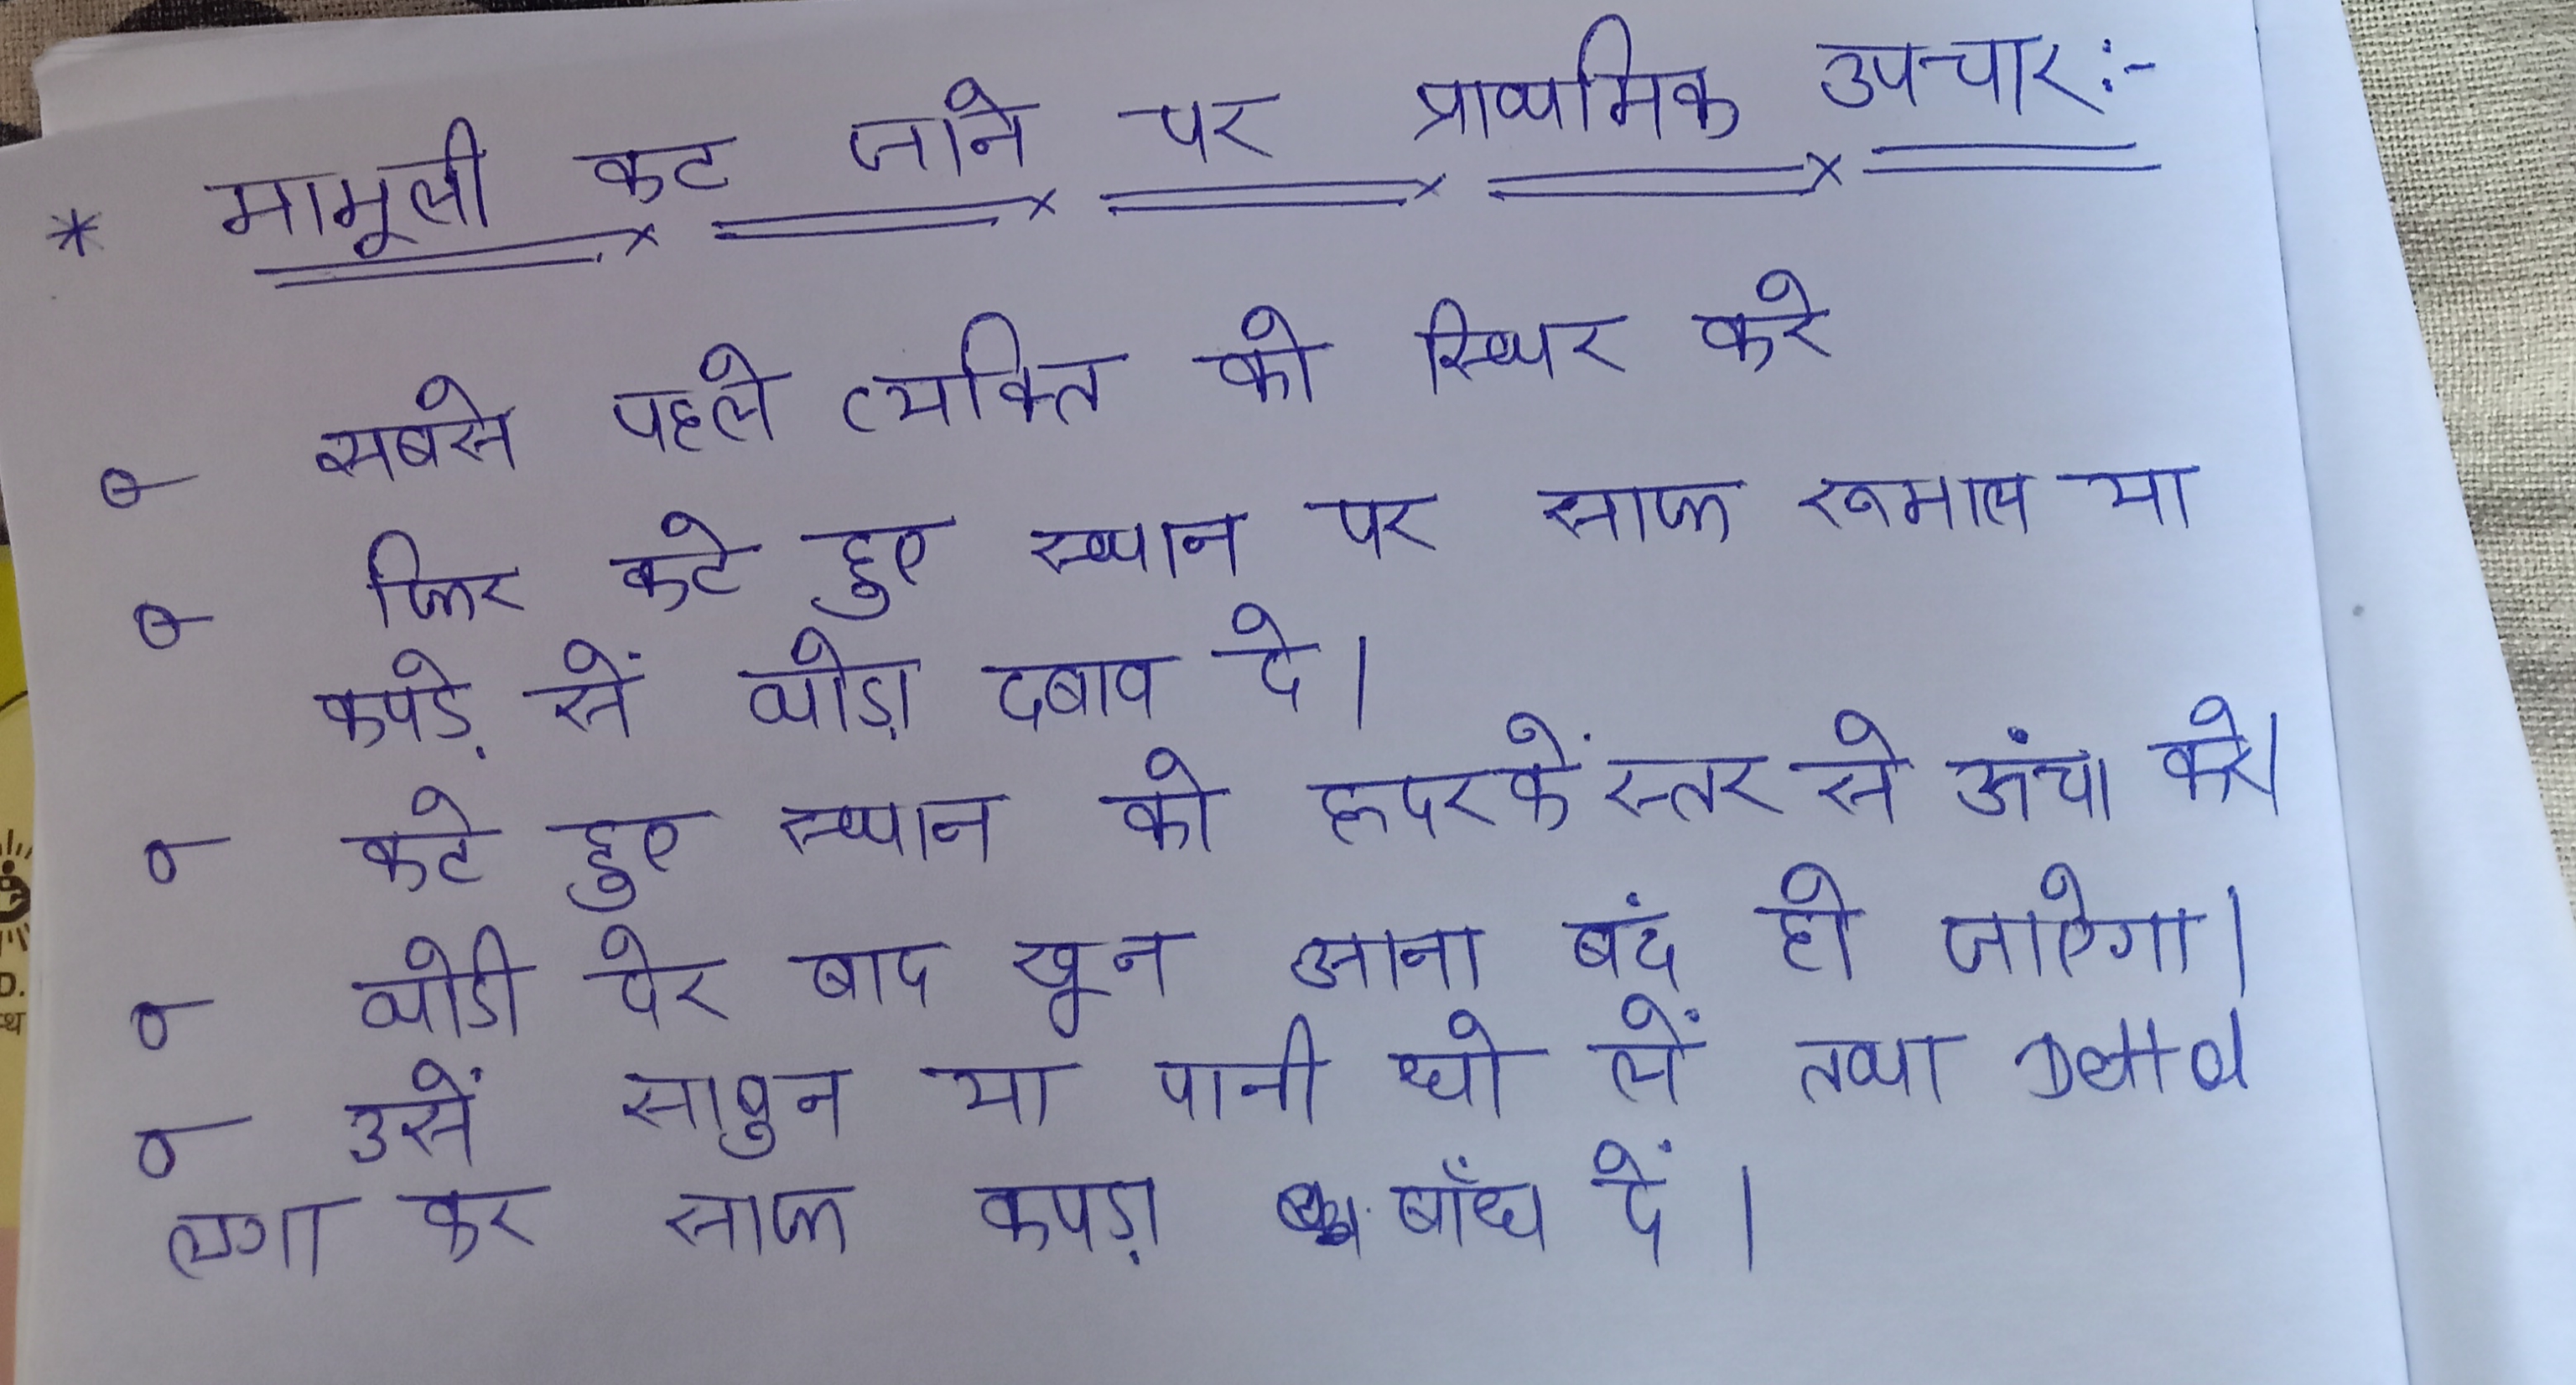 * मामूली कट जाने पर प्राथमिक उपचार :-
सबसे पहले व्यक्ति को स्थिर करे
फिर कटे हुए स्थान पर साफ रूमाल या
कपड़े सें थोड़ा दबाव दे।
कटे हुए स्थान को हृदय कें स्तर से ऊंचा करे।
थोडी देर बाद खून आना बंद हो जाऐगा।
उसें साबुन या पानी धो लें तथा Dettol
लगा कर साफ कपड़ा बाँध दें।
D.
स्थ